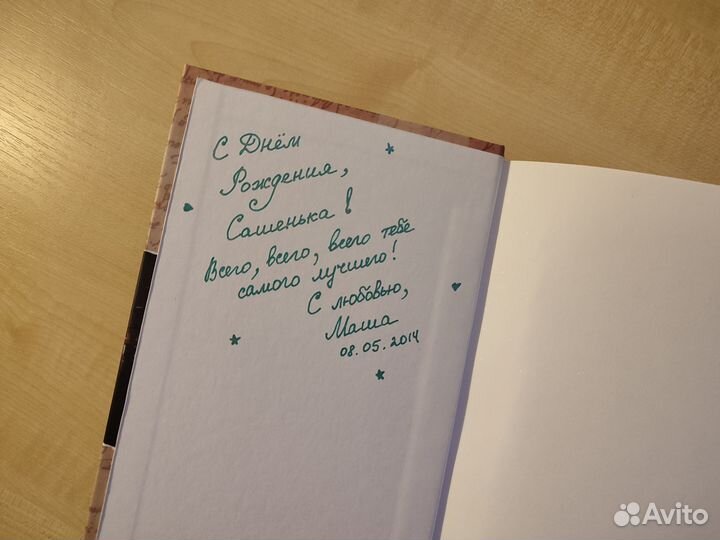 С Днём
Рождения,
Сашенька!
Всего, всего, всего тебе
самого лучшего!
С любовью,
Маша
08.05.2014
Avito